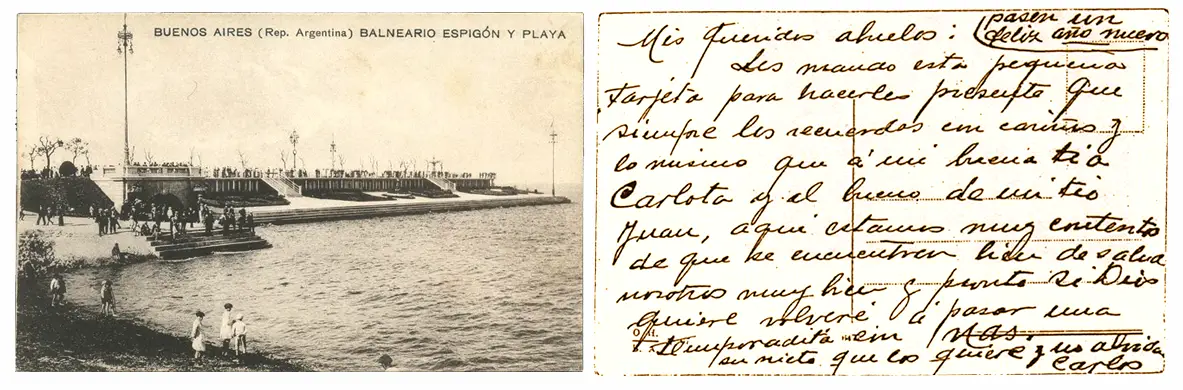 BUENOS AIRES (Rep. Argentina) BALNEARIO ESPIGÓN Y PLAYA
Mis queridos abuelos:
pasen un
feliz año nuevo
Les mando esta pequeña
tarjeta para hacerles presente que
siempre los recuerdos con cariños y
lo mismo que á mi buena tia
Carlota y al bueno de mi tio
Juan, aqui estamos muy contentos
de que se encuentran bien de salud
nosotros muy bien y pronto si Dios
quiere volveré á pasar una
temporadita en
su nieto que los quiere y no olvida
Carlos